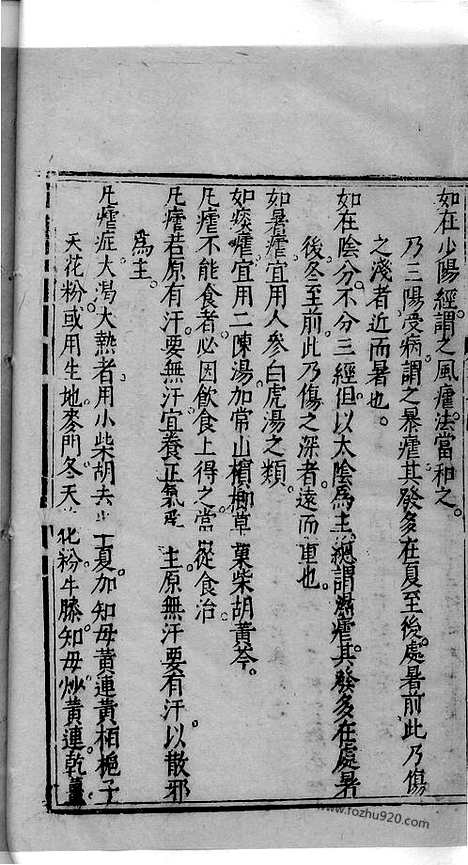 如在少陽經謂之風瘧法當和之。
乃三陽受病謂之暴瘧其發多在夏至後處暑前此乃傷
之淺者近而暑也。
如在陰分不分三經但以太陰為主總謂濕瘧其發多在處暑
後冬至前此乃傷之深者遠而重也。
如暑瘧宜用人參白虎湯之類。
如痰瘧宜用二陳湯加常山檳榔草菓柴胡黃芩。
凡瘧不能食者必因飲食上得之當從食治
凡瘧若原有汗要無汗宜養正氣 主原無汗要有汗以散邪
為主。
凡瘧症大渴大熱者用小柴胡去半夏加知母黃連黃栢梔子
天花粉或用生地麥門冬天 花粉牛膝知母炒黃連乾薑
www.fozhu920.com